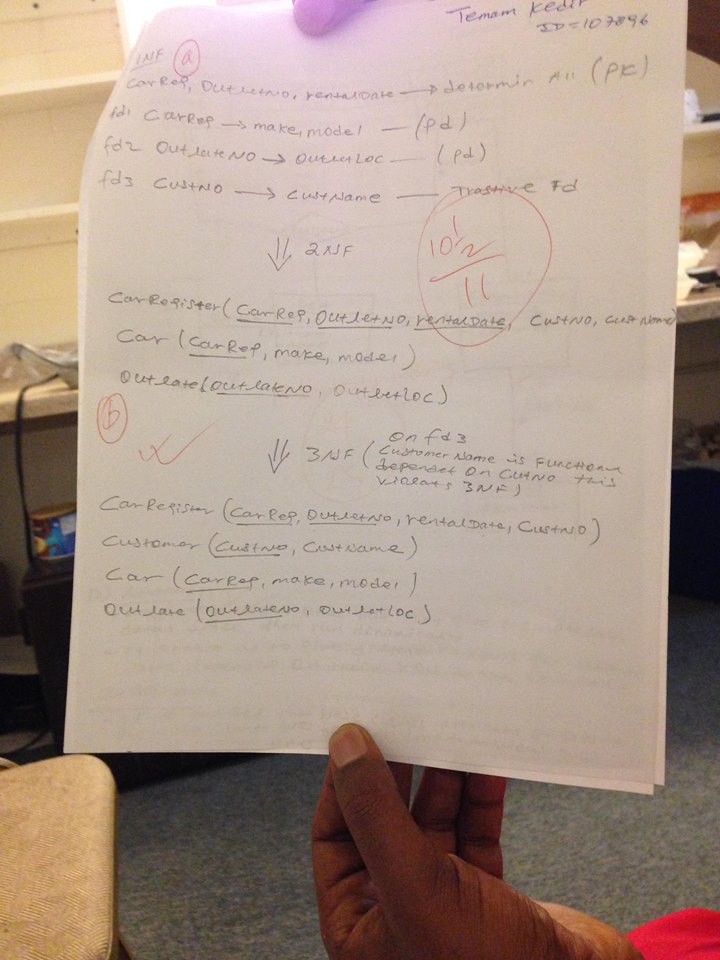 Temam Kedir
ID=107896
1NF (a)
CarReg, OutletNO, rentalDate → determin All (PK)
fd1 CarReg → make, model — (pd)
fd2 OutlateNO → OutletLoc — (pd)
fd3 CustNO → CustName — Trastive Fd
⇓ 2NF
10 1/2
11
CarRegister (CarReg, OutletNO, rentalDate, CustNO, CustName
Car (CarReg, make, model)
Outlate (OutlateNO, OutletLoc)
(b)
⇓ 3NF ( On fd3
Customer Name is Function
dependet On CutNO this
violats 3NF)
CarRegister (CarReg, OutletNO, rentalDate, CustNO)
Customer (CustNO, CustName)
Car (CarReg, make, model)
Outlate (OutlateNO, OutletLoc)